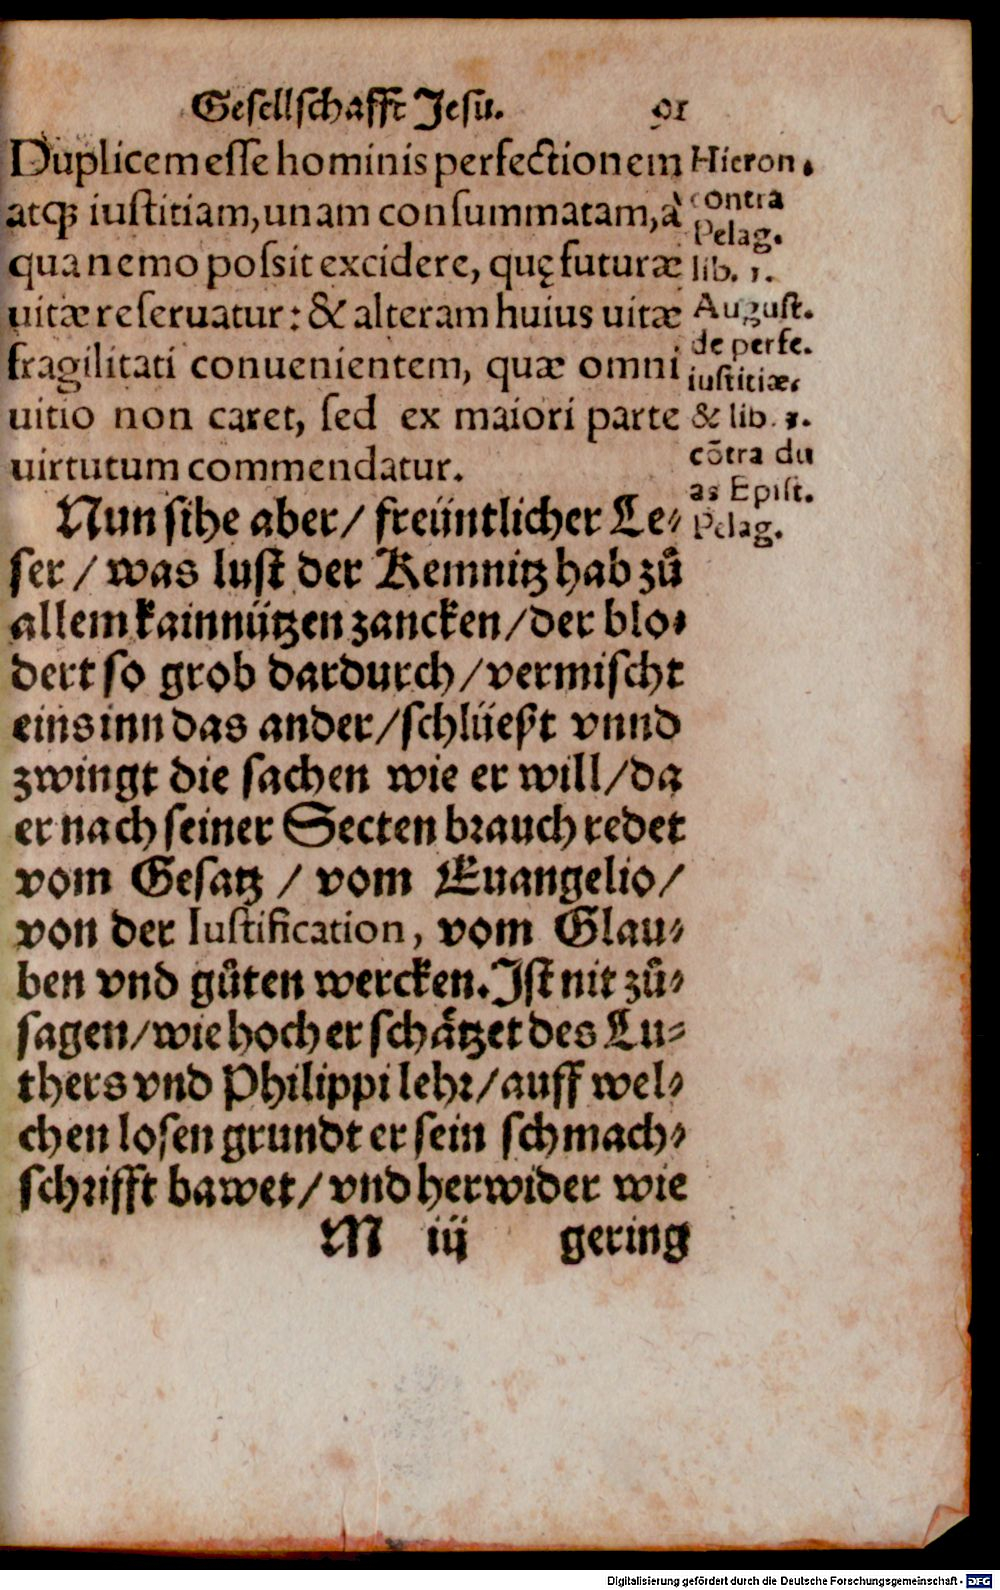 Gesellschafft Jesu. 91
Duplicem esse hominis perfectionem
atq́ꝫ iustitiam, unam consummatam, à
qua nemo possit excidere, quę futuræ
uitæ reseruatur: & alteram huius uitæ
fragilitati conuenientem, quæ omni
uitio non caret, sed ex maiori parte
uirtutum commendatur.
Hieron.
contra
Pelag.
lib. 1.
August.
de perfe.
iustitiæ,
& lib. 1.
cõtra du
as Epist.
Pelag.
Nun sihe aber / freüntlicher Le-
ser / was lust der Kemnitz hab zů
allem kainnützen zancken / der blo-
dert so grob dardurch / vermischt
eins inn das ander / schlüeßt vnnd
zwingt die sachen wie er will / da
er nach seiner Secten brauch redet
vom Gesatz / vom Euangelio /
von der Iustification, vom Glau-
ben vnd gůten wercken. Ist nit zů-
sagen / wie hoch er schåtzet des Lu-
thers vnd Philippi lehr / auff wel-
chen losen grundt er sein schmach-
schrifft bawet / vnd herwider wie
M iij gering
Digitalisierung gefördert durch die Deutsche Forschungsgemeinschaft - DFG